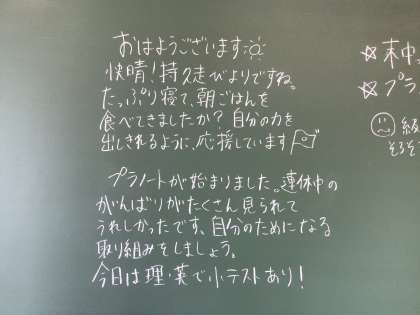 おはようございます
快晴！持久走びよりですね。
たっぷり寝て、朝ごはんを
食べてきましたか？自分の力を
出しきれるように、応援しています
プラノートが始まりました。連休中の
がんばりがたくさん見られて
うれしかったです、自分のためになる
取り組みをしましょう。
今日は理・英で小テストあり！
☆
☆プラ
そろそ